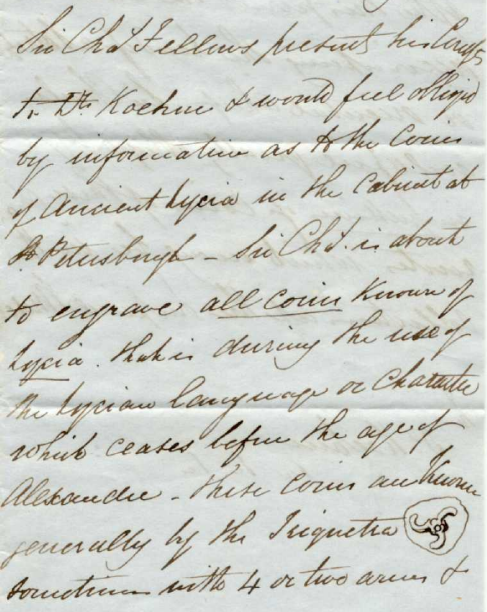 Sir Chs Fellows presents his Compts
to Dr Koehne & would feel obliged
by information as to the coins
of Ancient Lycia in the Cabinet at
St Petersburgh - Sir Chs. is about
to engrave all coins known of
Lycia. that is during the use of
the Lycian language or character
which ceases before the age of
Alexander - these coins are known
generally by the Triquetra
sometimes with 4 or two arms &